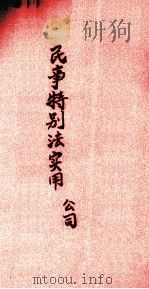 研狗
民事特别法实用
公司
mtoou.info